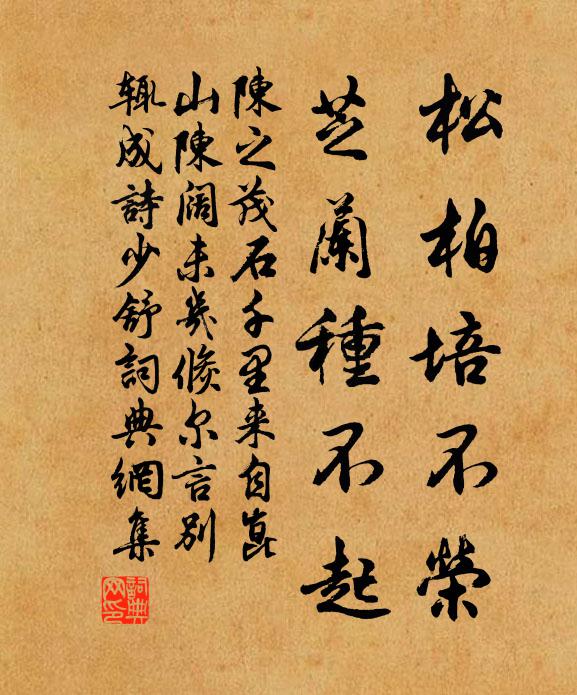 松柏培不榮
芝蘭種不起
陳之茂石千里来自崑
山陳阔未幾倏尔言别
辄成詩少舒詞典網集
詞典
网印